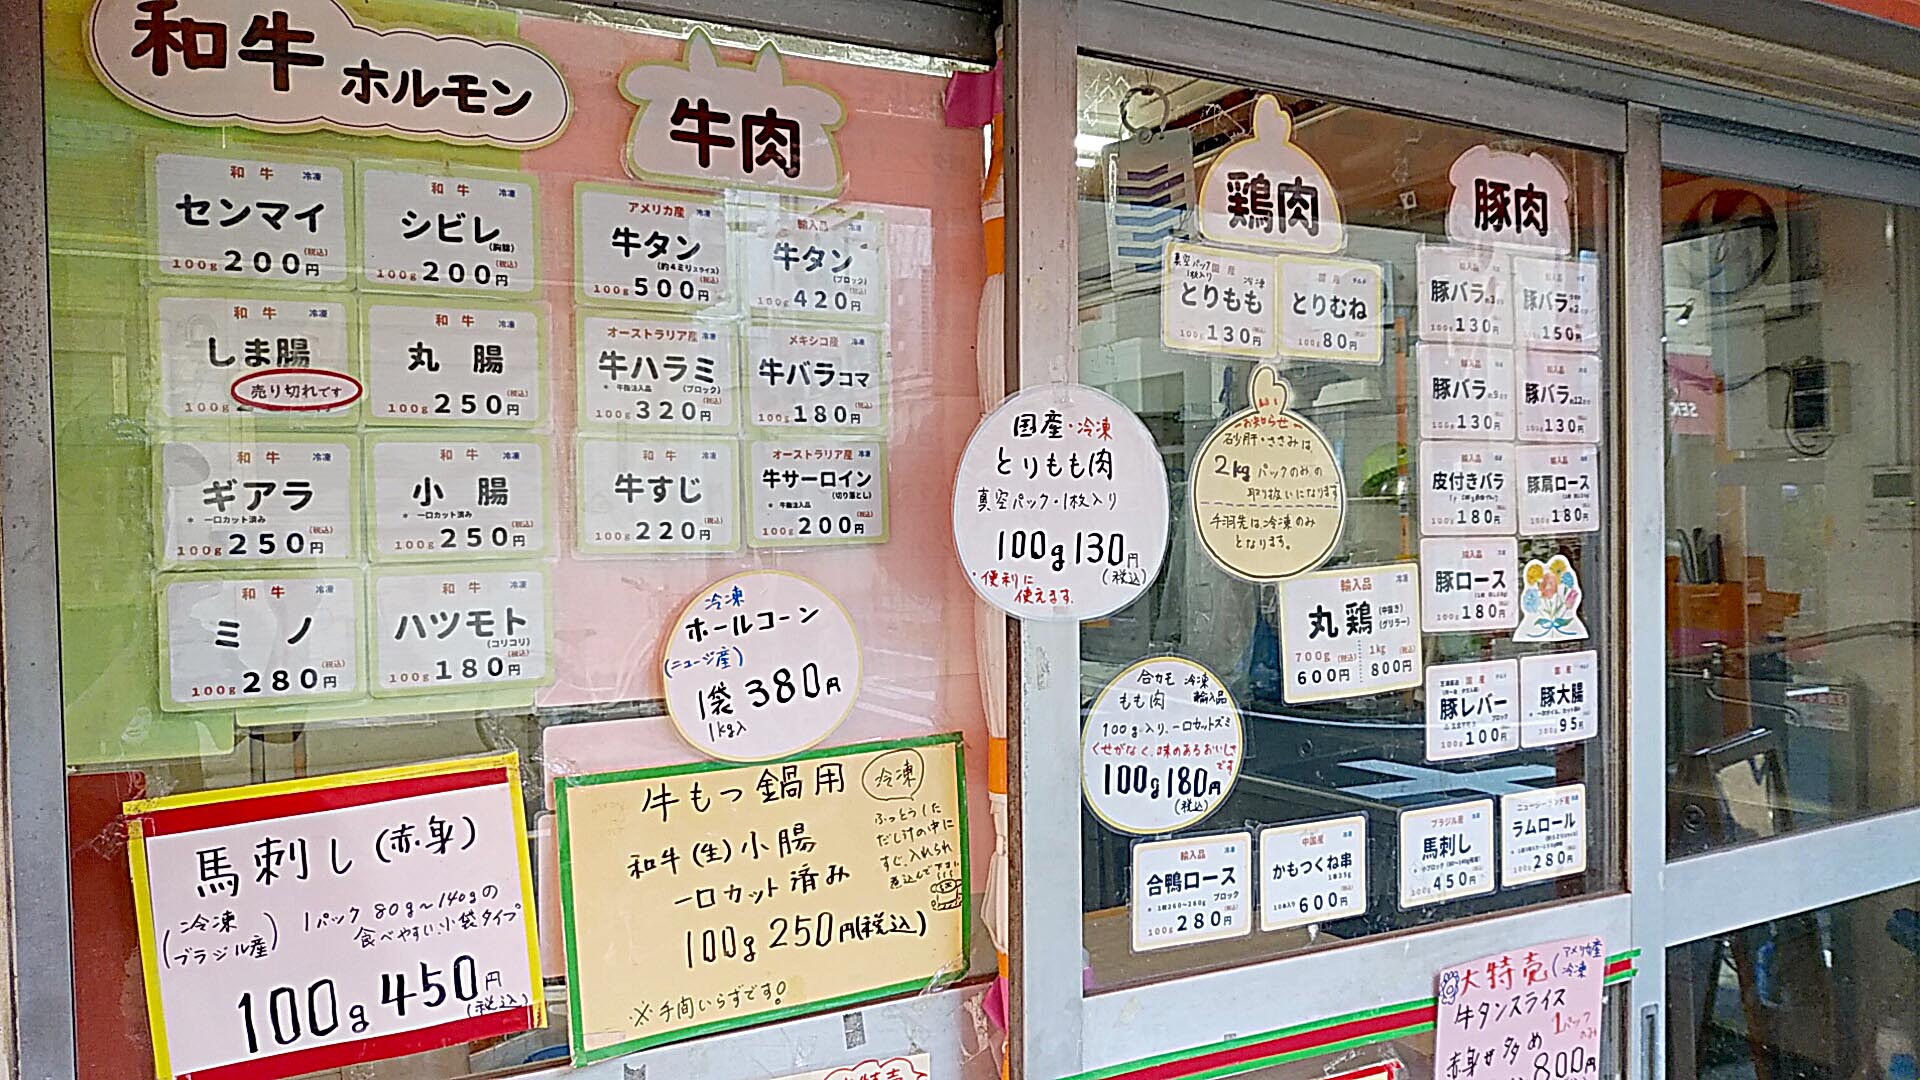 和牛 ホルモン
和牛 冷凍
センマイ
(税込)
100g 200円
和牛 冷凍
シビレ
(胸腺)
(税込)
100g 200円
和牛 冷凍
しま腸
売り切れです
100g
和牛 冷凍
丸 腸
(税込)
100g 250円
和牛 冷凍
ギアラ
* 一口カット済み
(税込)
100g 250円
和牛 冷凍
小 腸
* 一口カット済み
(税込)
100g 250円
和牛 冷凍
ミ ノ
(税込)
100g 280円
和牛 冷凍
ハツモト
(コリコリ)
(税込)
100g 180円
牛肉
アメリカ産 冷凍
牛タン
(約4ミリスライス)
(税込)
100g 500円
輸入品 冷凍
牛タン
(ブロック)
(税込)
100g 420円
オーストラリア産 冷凍
牛ハラミ
* 牛脂注入品 (ブロック)
(税込)
100g 320円
メキシコ産 冷凍
牛バラコマ
(税込)
100g 180円
和牛 冷凍
牛すじ
(税込)
100g 220円
オーストラリア産 冷凍
牛サーロイン
(切り落とし)
* 牛脂注入品
(税込)
100g 200円
冷凍
ホールコーン
(ニュージ産)
1袋 380円
1kg入
馬刺し(赤身)
(冷凍
ブラジル産)
1パック 80g~140gの
食べやすい、小袋タイプ。
100g 450円
(税込)
牛もつ鍋用 冷凍
和牛(生)小腸
一口カット済み
100g 250円(税込)
※手間いらずです。
ふっとうした
だし汁の中に
すぐ、入れられ
国産・冷凍
とりもも肉
真空パック・1枚入り
100g 130円
(税込)
・便利に
使えます。
鶏肉
真空パック 国産
1枚入り 冷凍
とりもも
(税込)
100g 130円
国産 チルド
とりむね
(税込)
100g 80円
お知らせ
砂肝・ささみは
2kgパックのみの
取り扱いになります
手羽先は冷凍のみ
となります。
輸入品 冷凍
丸鶏
(中抜き)
(グリラー)
700g (税込)
600円
1kg (税込)
800円
合カモ 冷凍
もも肉 輸入品
100g入り、一口カットズミ
くせがなく、味のあるおいしさ
です
100g 180円
(税込)
輸入品 冷凍
合鴨ロース
ブロック
100g 280円
中国産 冷凍
かもつくね串
1本35g
10本入り 600円
豚肉
輸入品
豚バラ
100g 130円
豚バラ
150円
輸入品
豚バラ
100g 130円
輸入品
豚バラ
100g 130円
輸入品
皮付きバラ
100g 180円
輸入品
豚肩ロース
100g 180円
輸入品
豚ロース
100g 180円
国産 チルド
豚レバー
ブロック
100g 100円
国産 チルド
豚大腸
100g 95円
ブラジル産 冷凍
馬刺し
100g 450円
ニュージーランド産 冷凍
ラムロール
100g 280円
大特売 (アメリカ産
冷凍
牛タンスライス
赤身せ多め 1パック
のみ
800円